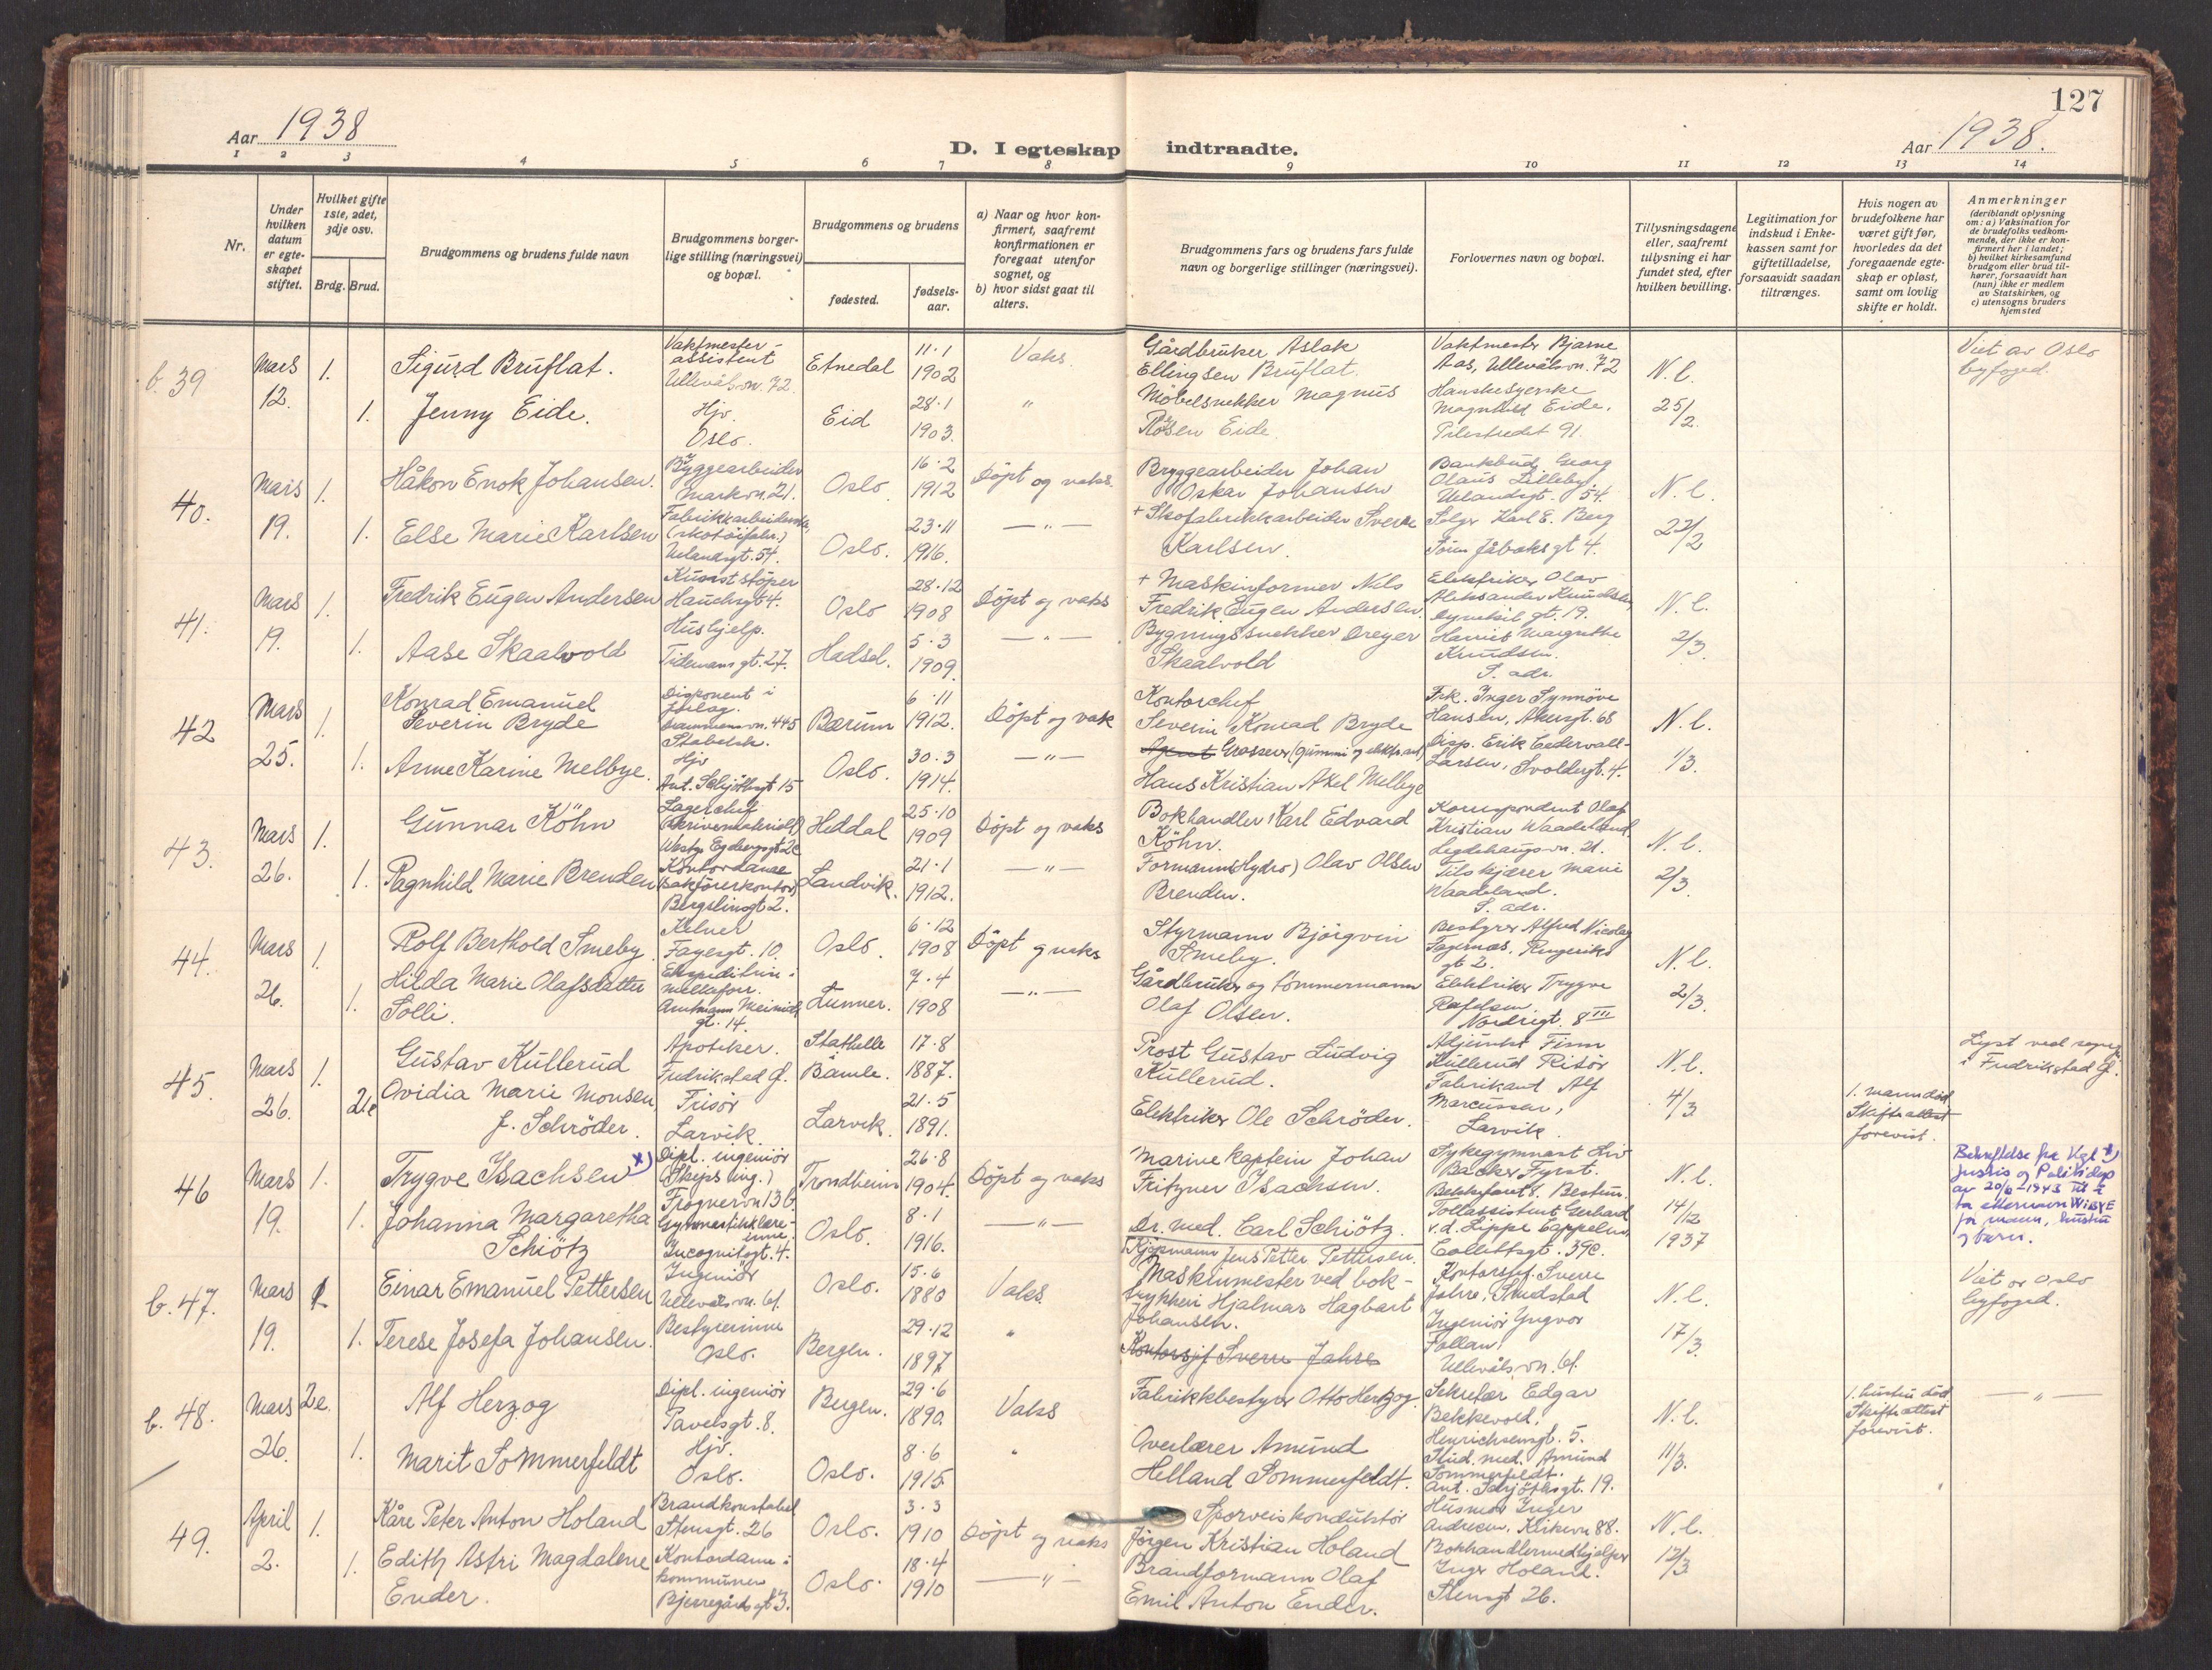 127
Aar 1938
D. I egteskap indtraadte.
Aar 1938.
1 2 3 4 5 6 7 8 9 10 11 12 13 14
Nr.
Under hvilken datum er egteskapet stiftet.
Hvilket gifte 1ste, 2det, 3dje osv.
Brdg. Brud.
Brudgommens og brudens fulde navn
Brudgommens borgerlige stilling (næringsvei) og bopæl.
Brudgommens og brudens
fødested.
fødselsaar.
a) Naar og hvor konfirmert, saafremt konfirmationen er foregaat utenfor sognet, og
b) hvor sidst gaat til alters.
Brudgommens fars og brudens fars fulde navn og borgerlige stillinger (næringsvei).
Forlovernes navn og bopæl.
Tillysningsdagene eller, saafremt tillysning ei har fundet sted, efter hvilken bevilling.
Legitimation for indskud i Enkekassen samt for giftetilladelse, forsaavidt saadan tiltrænges.
Hvis nogen av brudefolkene har været gift før, hvorledes da det foregaaende egteskap er opløst, samt om lovlig skifte er holdt.
Anmerkninger
(deriblandt oplysning om: a) Vaksination for de brudefolks vedkommende, der ikke er konfirmert her i landet; b) hvilket kirkesamfund brudgom eller brud tilhører, forsaavidt han (hun) ikke er medlem av Statskirken, og c) utensogns bruders hjemsted
b. 39 Mars 12. 1. Sigurd Bruflat. Vaktmesterassistent Ullevålsvn. 72 Etnedal 11.1 1902 Vaks.
Gårdbruker Aslak Ellingsen Bruflat. Vaktmester Bjarne Aas, Ullevålsvn. 72 N. l. 25/2 Viet av Oslo byfoged.
1. Jenny Eide. Hjv. Oslo. Eid 28.1 1903. "
Møbelsnekker Magnus Eide Hanskesyerske Magnhild Eide. Pilestredet 91.
40. Mars 19. 1. Håkon Enok Johansen. Byggearbeider Markvn. 21. Oslo 16.2 1912 Döpt og vaks.
Bryggearbeider Johan Oskar Johansen Bankbud Georg Olaus Lilleby Uelandsgt. 54. N. l. 22/2
1. Else Marie Karlsen Fabrikkarbeiderske (skotöifabr.) Uelandsgt. 54. Oslo. 23.11 1916. — " —
+ Skofabrikkarbeider Sverre Karlsen. Selger Karl E. Berg gt 4.
41. Mars 19. 1. Fredrik Eugen Andersen Kunststöper Hauchsgt 4. Oslo 28.12 1908 Döpt og vaks
+ Maskinformer Nils Fredrik Eugen Andersen. Elektriker Olav Aleksander Knudsen, Dynekil gt. 19. N. l. 2/3.
1. Aase Skaalvold Hushjelp. Tidemans gt. 27. Hadsel. 5.3 1909. — " —
Bygningssnekker Dreyer Skaalvold Harriet Margrethe Knudsen. S. adr.
42 Mars 25. 1. Konrad Emanuel Severin Bryde Disponent i Drammensvn. 445 Stabekk. Bærum 6.11 1912. Döpt og vak
Kontorchef Severin Konrad Bryde Frk. Inger Synnöve Hansen, Akersgt. 68 N. l. 1/3.
1. Anne Karine Melbye. Hjv Ant. Schjöthsgt 15 Oslo. 30.3 1914. — " —
Agent Grosserer (gummi og elektr. art) Hans Kristian Axel Melbye Disp. Erik Cedervall-Larsen, Svoldergt. 4.
43. Mars 26. 1. Gunnar Köhn Lagerchef (skrivemateriell) Vestye Egebergsgt 2c Heddal 25.10 1909 Döpt og vaks
Bokhandler Karl Edvard Köhn. Korrespondent Olaf Kristian Waadeland, Legdehaugsvn. 21. N. l. 2/3.
1. Ragnhild Marie Brenden Kontordame (sakförerkontor) Bergsliensgt 2. Landvik. 21.1 1912. — " —
Formann (Hydro) Olav Olsen Brenden. Tilskjærer Marie Waadeland. S. adr.
44. Mars 26. 1. Rolf Berthold Smeby. Kelner Fayesgt. 10. Oslo 6.12 1908 Döpt og vaks
Styrmann Björgvin Smeby. Bestyrer Alfred Nicolay Fagernæs, Ringeriks gt 2. N. l. 2/3.
1. Hilda Marie Olafsdatter Solli. Amtmann Meinichs gt. 14. Lunner. 7.4 1908 — " —
Gårdbruker og tömmermann Olaf Olsen. Elektriker Trygve Nordregt. 8 III
45. Mars 26. 1. Gustav Kullerud Apoteker. Fredrikstad Gl. Stathelle Bamle. 17.8 1887.
Prost Gustav Ludvig Kullerud. Adjunkt Finn Kullerud Risör N. l. 4/3 Lyst ved sogn i Fredrikstad Gl.
2e Ovidia Marie Monsen f. Schröder. Frisör Larvik. Larvik. 21.5 1891.
Elektriker Ole Schröder. Fabrikant Alf Marcussen, Larvik. 1. mann död Skifteattest forevist.
46 Mars 19. 1. Trygve Isachsen x) Dipl. ingeniör (Skips ing.) Frognervn 13b. Trondheim 26.8 1904. Döpt og vaks
Marine kaptein Johan Fritzner Isachsen. Sykegymnast Liv Backer Fyrst. Bekkefaret 8. Bestun. N. l. 14/12 1937
x) Bekreftelse fra Kgl. Justis og Politidep av 20/6-1943 til å ta etternavn WISVE for mann, hustru og barn.
1. Johanna Margaretha Schiötz Gymnastikklærerinne. Incognitogt. 4. Oslo. 8.1 1916. — " —
Dr. med. Carl Schiötz. Tollassistent Gerhard v.d. Lippe Cappelen, Collettsgt. 39c.
b. 47. Mars 19. 1 Einar Emanuel Pettersen Ingeniör Ullevålsvn. 61. Oslo. 15.6 1880 Vaks.
Kjöpmann Jens Petter Pettersen. Kontorsjef Sverre Jahre, N. l. 17/3. Viet av Oslo byfoged.
1. Terese Josefa Johansen. Bestyrerinne Oslo. Bergen. 29.12 1897 "
Maskinmester ved boktrykkeri Hjalmar Hagbart Johansen. Kontorsjef Sverre Jahre Ingeniör Yngvar Ullevålsvn. 61.
b. 48. Mars 26. 2e. Alf Herzog Dipl. ingeniör Pavelsgt. 8. Bergen. 29.6 1890. Vaks
Fabrikkbestyrer Otto Hertzog. Sekretær Edgar Bekkevold, Henrichsensgt. 5. N. l. 11/3. 1. hustru död Skifteattest forevist. — " —
1. Marit Sommerfeldt Hjv. Oslo. Oslo. 8.6 1915. "
Overlærer Amund Helland Sommerfeldt. Stud. med. Amund Sommerfeldt. Ant. Schjöthsgt. 19.
49. April 2. 1. Kåre Peter Anton Holand Brandkonstabel Stensgt. 26 Oslo. 3.3 1910 Döpt og vaks
Sporveiskonduktör Jörgen Kristian Holand Husmor Inger Andresen, Kirkevn 88. N. l. 12/3
1. Edith Astri Magdalene Ender. Kontordame i kommunen Bjerregårds gt 3. Oslo. 18.4 1910 — " —
Brandformann Olaf Emil Anton Ender. Bokhandlermedhjelper Inger Holand. Stensgt 26.